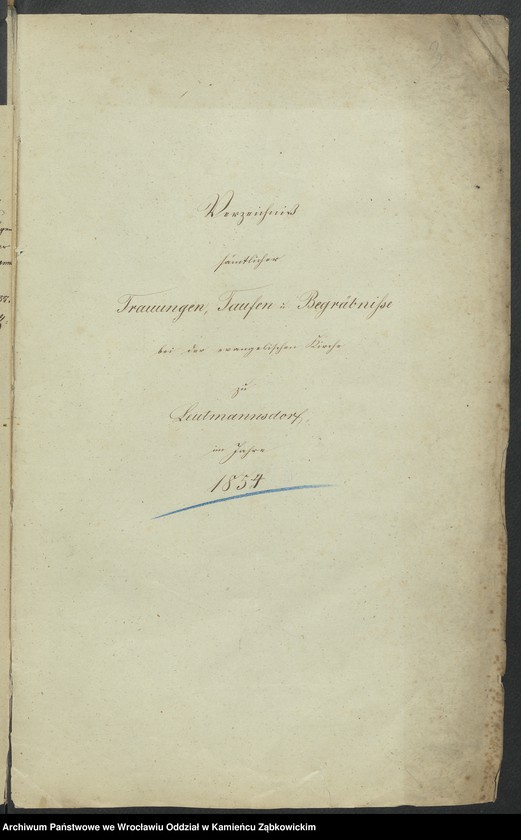 Verzeichniß
sämtlicher
Trauungen, Taufen u Begräbniße
bei der evangelischen Kirche
zu
Leutmannsdorf,
im Jahre
1854
Archiwum Państwowe we Wrocławiu Oddział w Kamieńcu Ząbkowickim